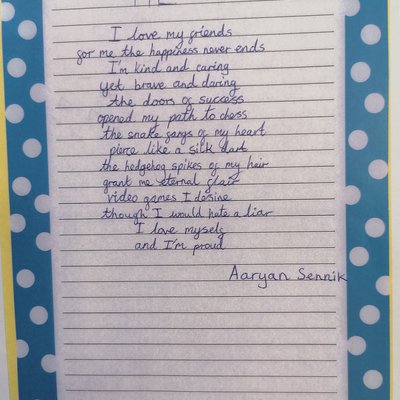 I love my friends
for me the happiness never ends
I'm kind and caring
yet brave and daring
the doors of success
opened my path to chess
the snake gangs of my heart
pierce like a silk dart
the hedgehog spikes of my heir
grant me eternal flair
video games I desine
though I would hate a liar
I love myself
and I'm proud
Aaryan Sennik